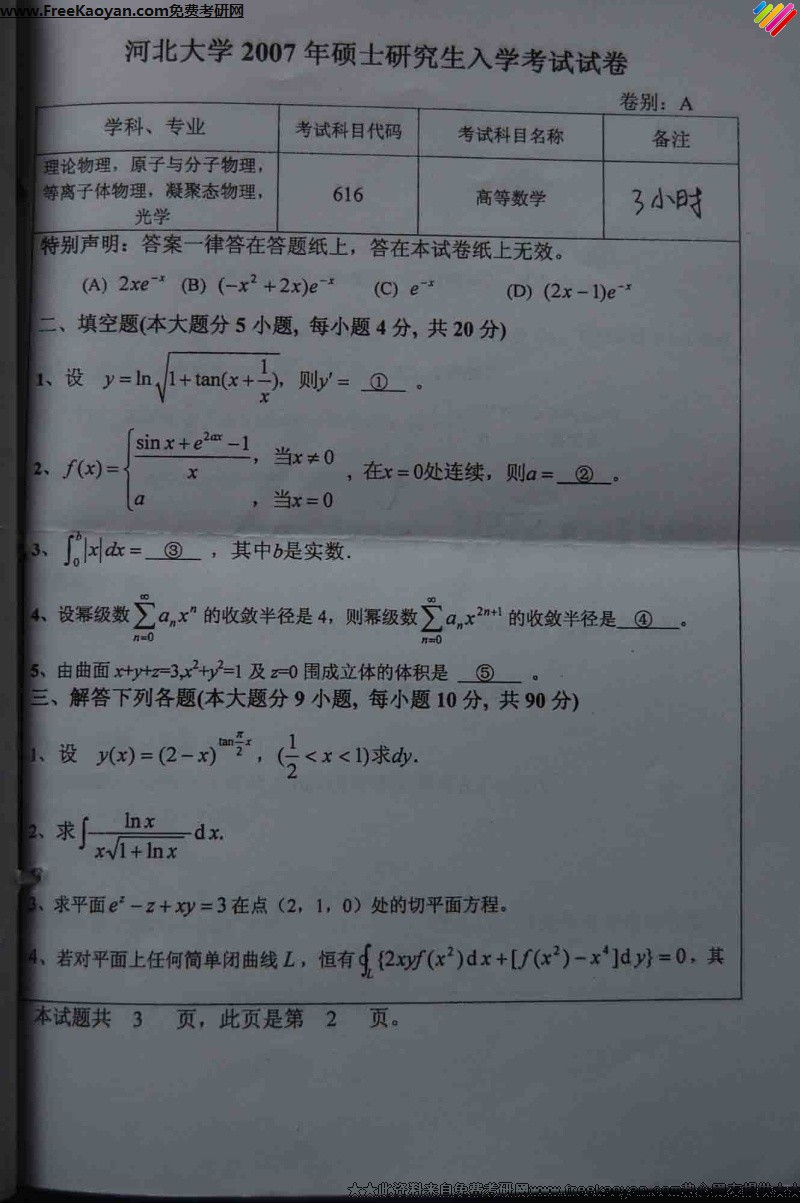 www.FreeKaoyan.com免费考研网
河北大学 2007 年硕士研究生入学考试试卷
卷别：A
学科、专业 考试科目代码 考试科目名称 备注
理论物理，原子与分子物理，
等离子体物理，凝聚态物理，
光学
616 高等数学 3小时
特别声明：答案一律答在答题纸上，答在本试卷纸上无效。
(A) 2xe^{-x} (B) (-x^2+2x)e^{-x} (C) e^{-x} (D) (2x-1)e^{-x}
二、填空题(本大题分 5 小题, 每小题 4 分, 共 20 分)
1、设 y=ln√(1+tan(x+1/x)), 则y′= ① 。
2、f(x)={ (sin x+e^{2ax}-1)/x ，当x≠0
a ，当x=0 ，在x=0处连续，则a= ② 。
3、∫_0^b|x|dx= ③ ，其中b是实数.
4、设幂级数 ∑_{n=0}^∞ a_n x^n 的收敛半径是 4，则幂级数 ∑_{n=0}^∞ a_n x^{2n+1} 的收敛半径是 ④ 。
5、由曲面 x+y+z=3,x^2+y^2=1 及 z=0 围成立体的体积是 ⑤ 。
三、解答下列各题(本大题分 9 小题, 每小题 10 分, 共 90 分)
1、设 y(x)=(2-x)^{tan(π/2)x}，(1/2<x<1)求dy.
2、求∫ ln x/(x√(1+ln x)) dx.
3、求平面 e^z-z+xy=3 在点（2，1，0）处的切平面方程。
4、若对平面上任何简单闭曲线 L，恒有∮_L{2xyf(x^2)dx+[f(x^2)-x^4]dy}=0，其
本试题共 3 页，此页是第 2 页。
★☆此资料来自免费考研网www.freekaoyan.com